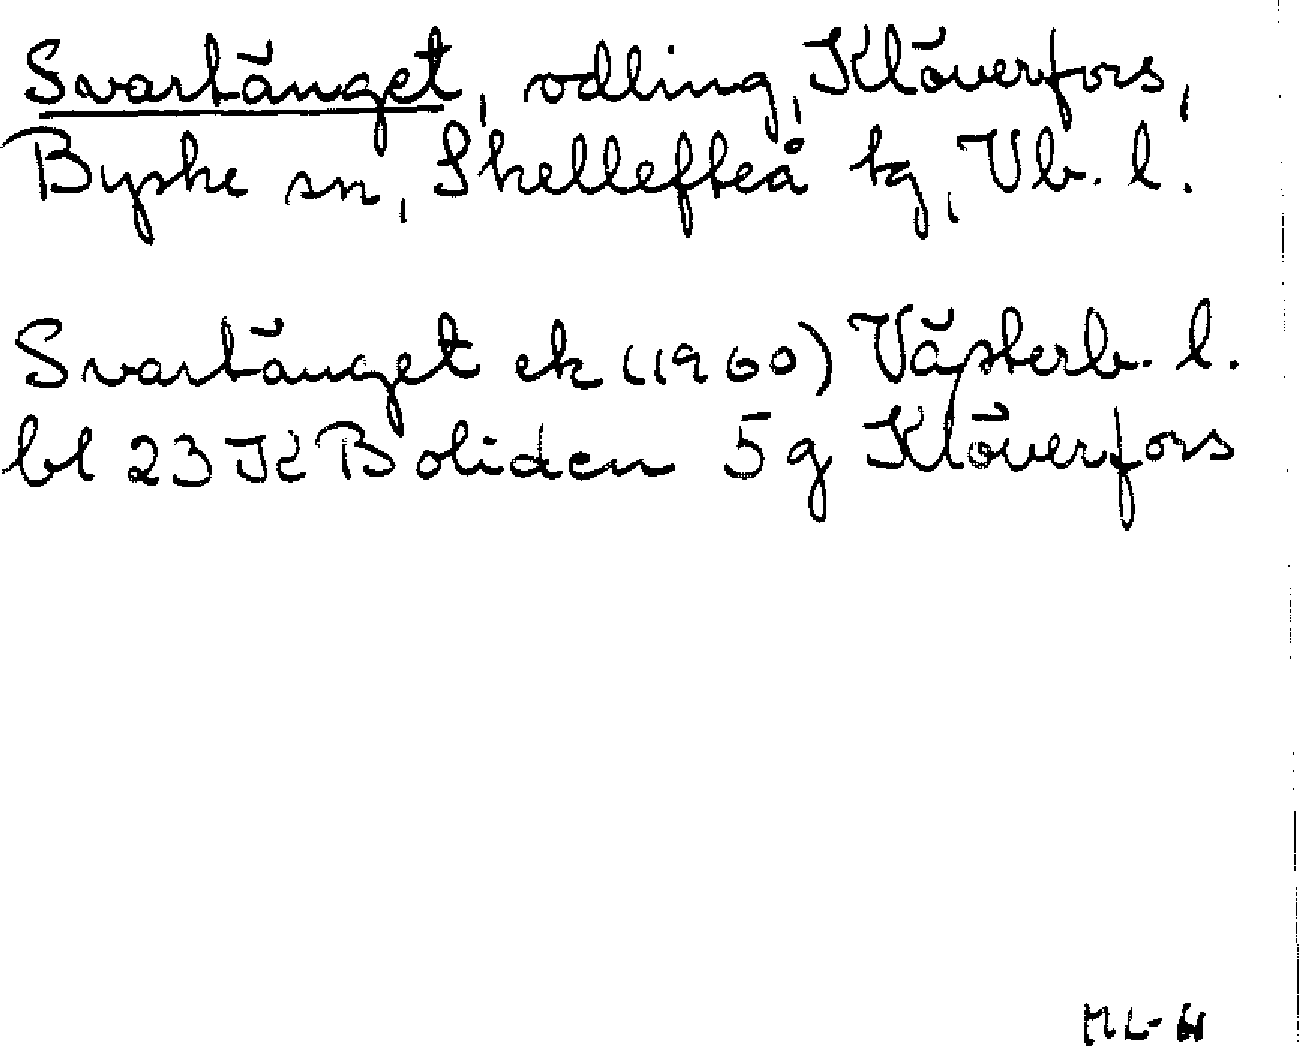 Svartänget, odling, Klöverfors,
Byske sn, Skellefteå tg, Vb. l.
Svartänget ek (1960) Västerb. l.
bl 23 K Boliden 5 g Klöverfors